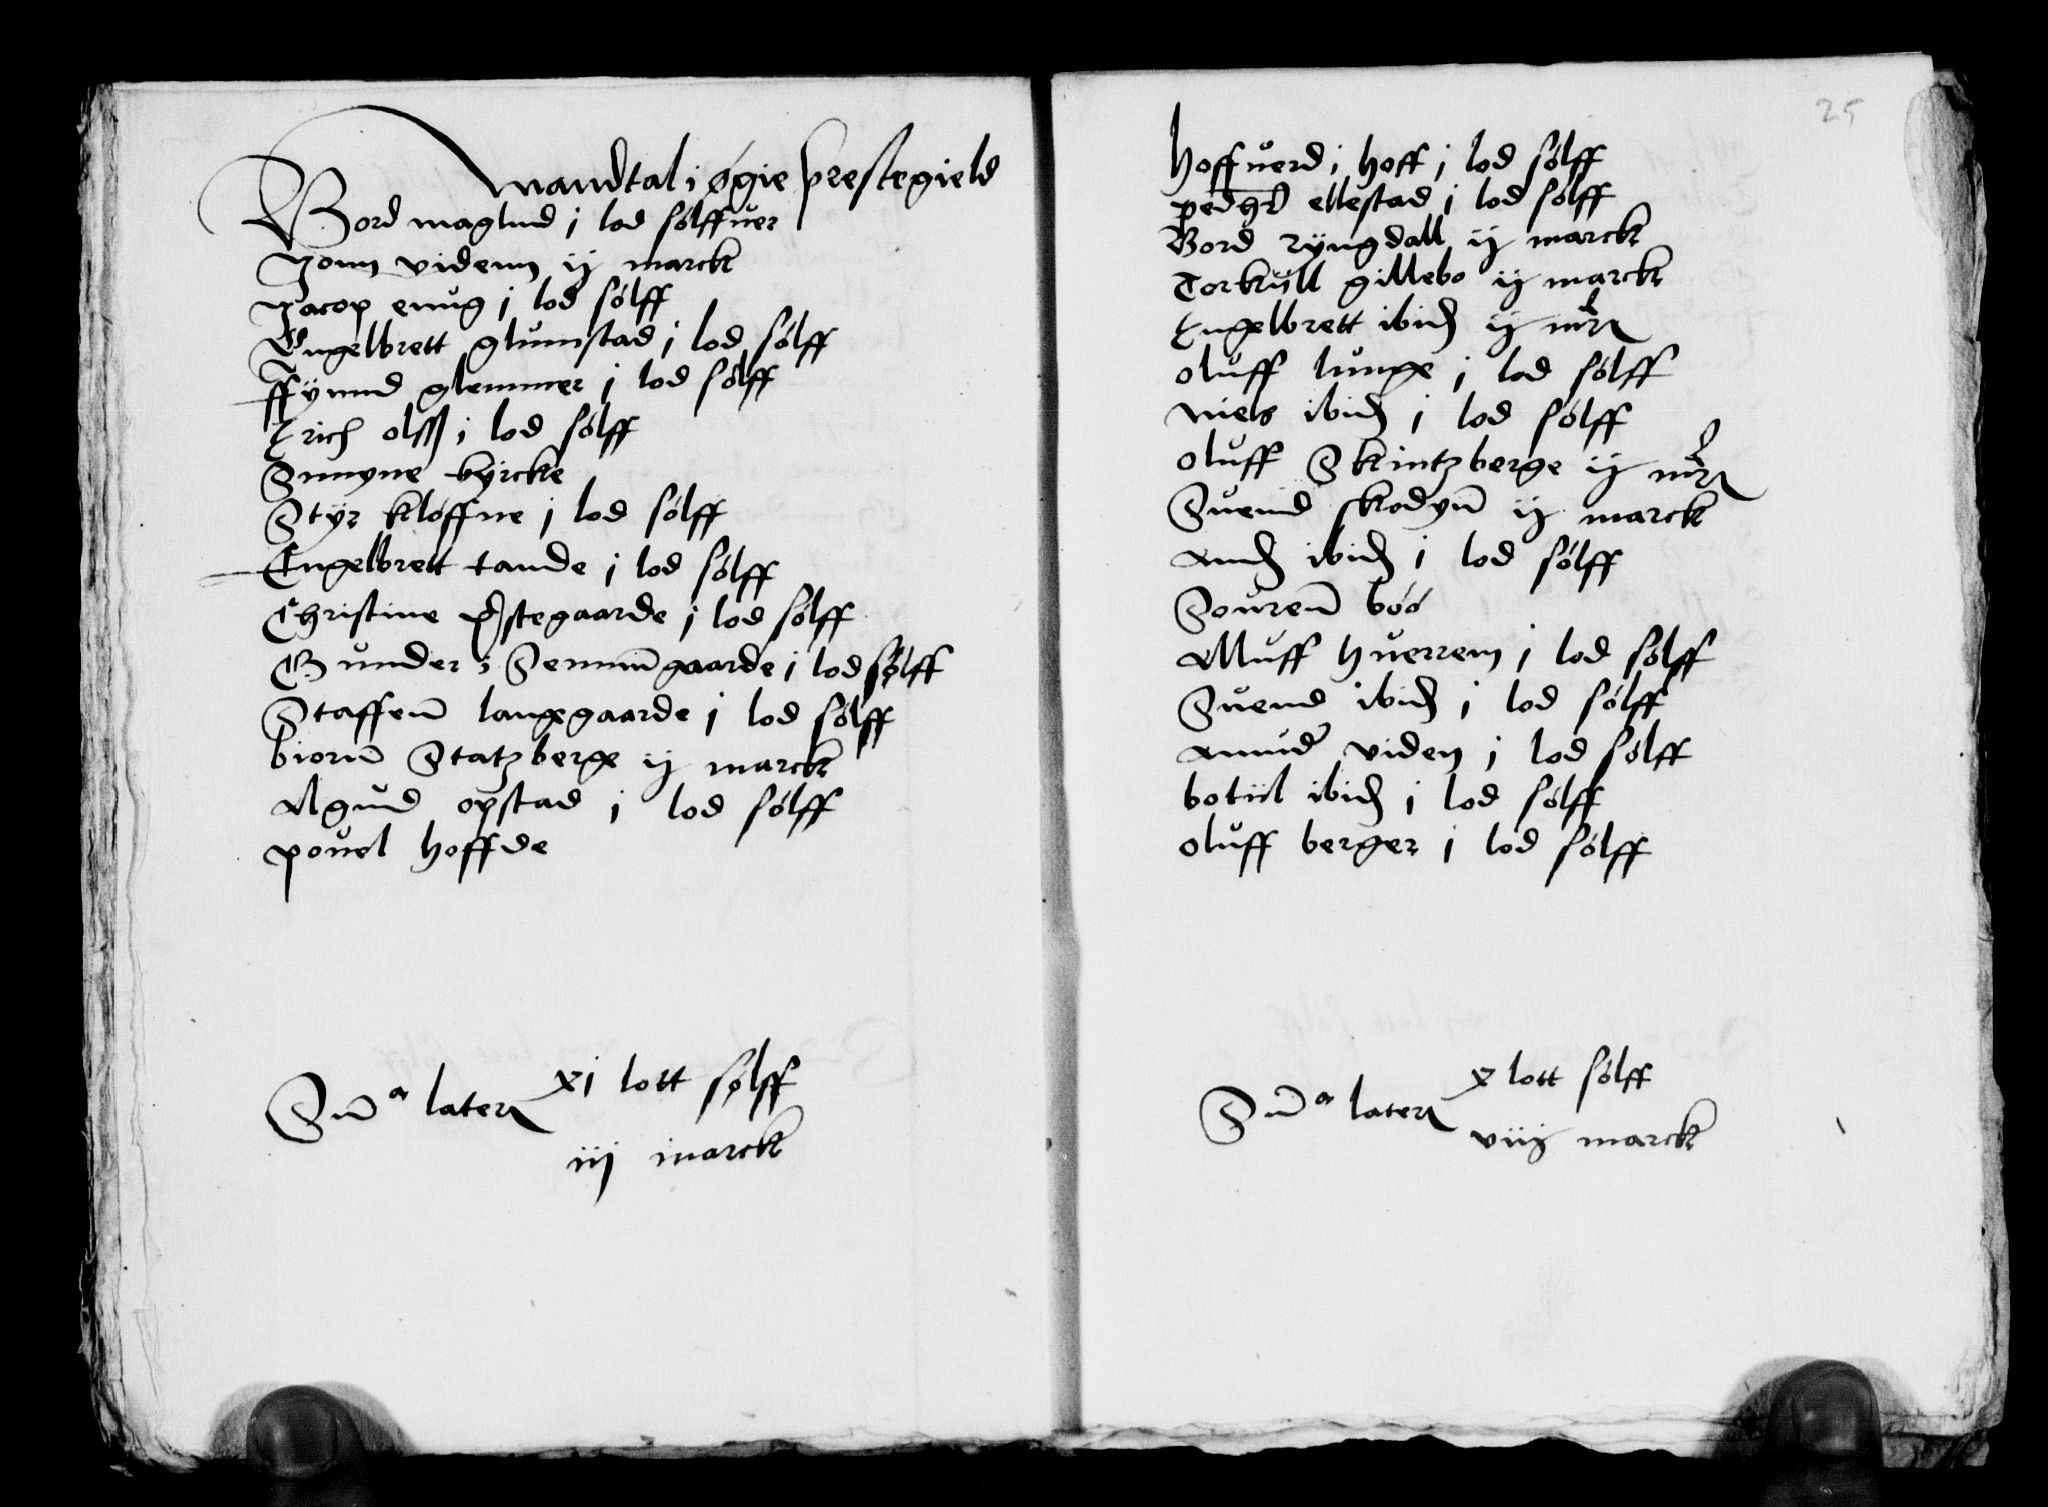 Mandtal i øgie prestegield
Bord maglund j lod sølffuer
Jonn videnn ij marck
Jacop enug j lod sølff
Engelbrett glumstad j lod sølff
ffynnd glemmer j lod sølff
Erich olss j lod sølff
Sunnyne kyrcke
Styr kløffne j lod sølff
Engelbrett tande j lod sølff
Christine prestegaarde j lod sølff
Gunder i Semmingaarde j lod sølff
Staffen langegaarde j lod sølff
biorn Statzberge ij marck
Agund opstad j lod sølff
pouel hoffde
Sum a later xj lott sølff
iiij marck
25
Hoffuerd i hoff j lod sølff
peder ellestad j lod sølff
Bord ryngdall ij marck
Torkill gillebo ij marck
Engelbrett ibid ij mrk
oluff lunge j lod sølff
niels ibid j lod sølff
oluff Skintzberge ij mrk
Suend skodyn ij marck
And ibid j lod sølff
Souren böö
Alluff huerrem j lod sølff
Suend ibid j lod sølff
Amund viden j lod sølff
botiil ibid j lod sølff
oluff berger j lod sølff
Sum a later x lott sølff
viij marck